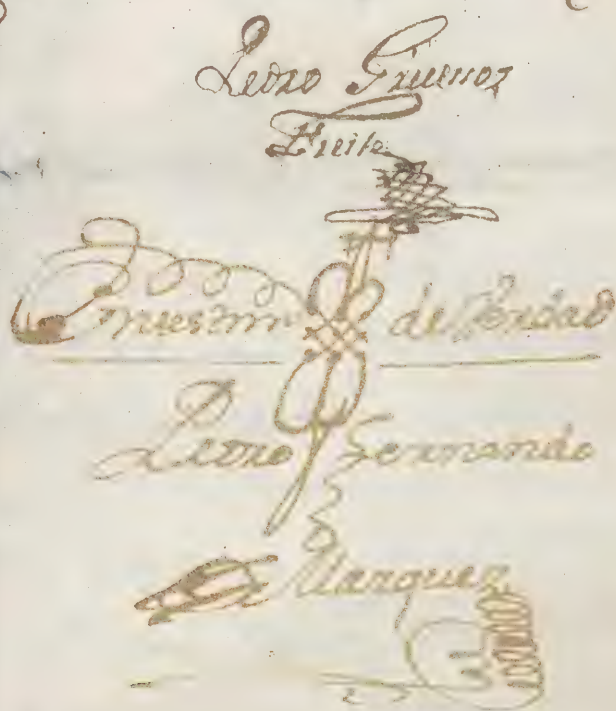 Pedro
Freile
En testimo de Verdad
Pedro Fernando
Marquez